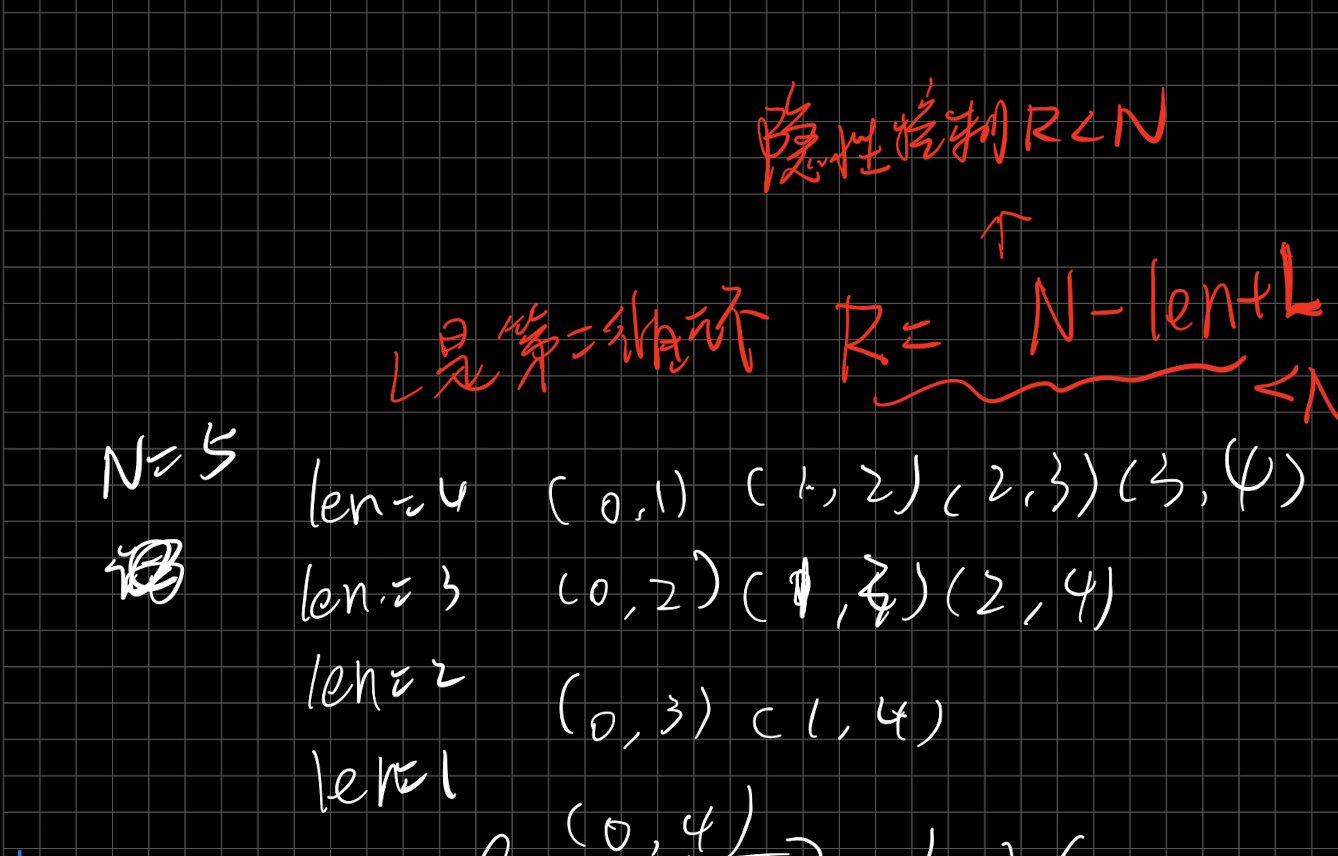 隐性控制 R<N
↑
L是第二循环 R= N-len+L
<N
N=5 len=4 (0,1) (1,2) (2,3) (3,4)
len=3 (0,2) (1, ) (2,4)
len=2 (0,3) (1,4)
len=1 (0,4)